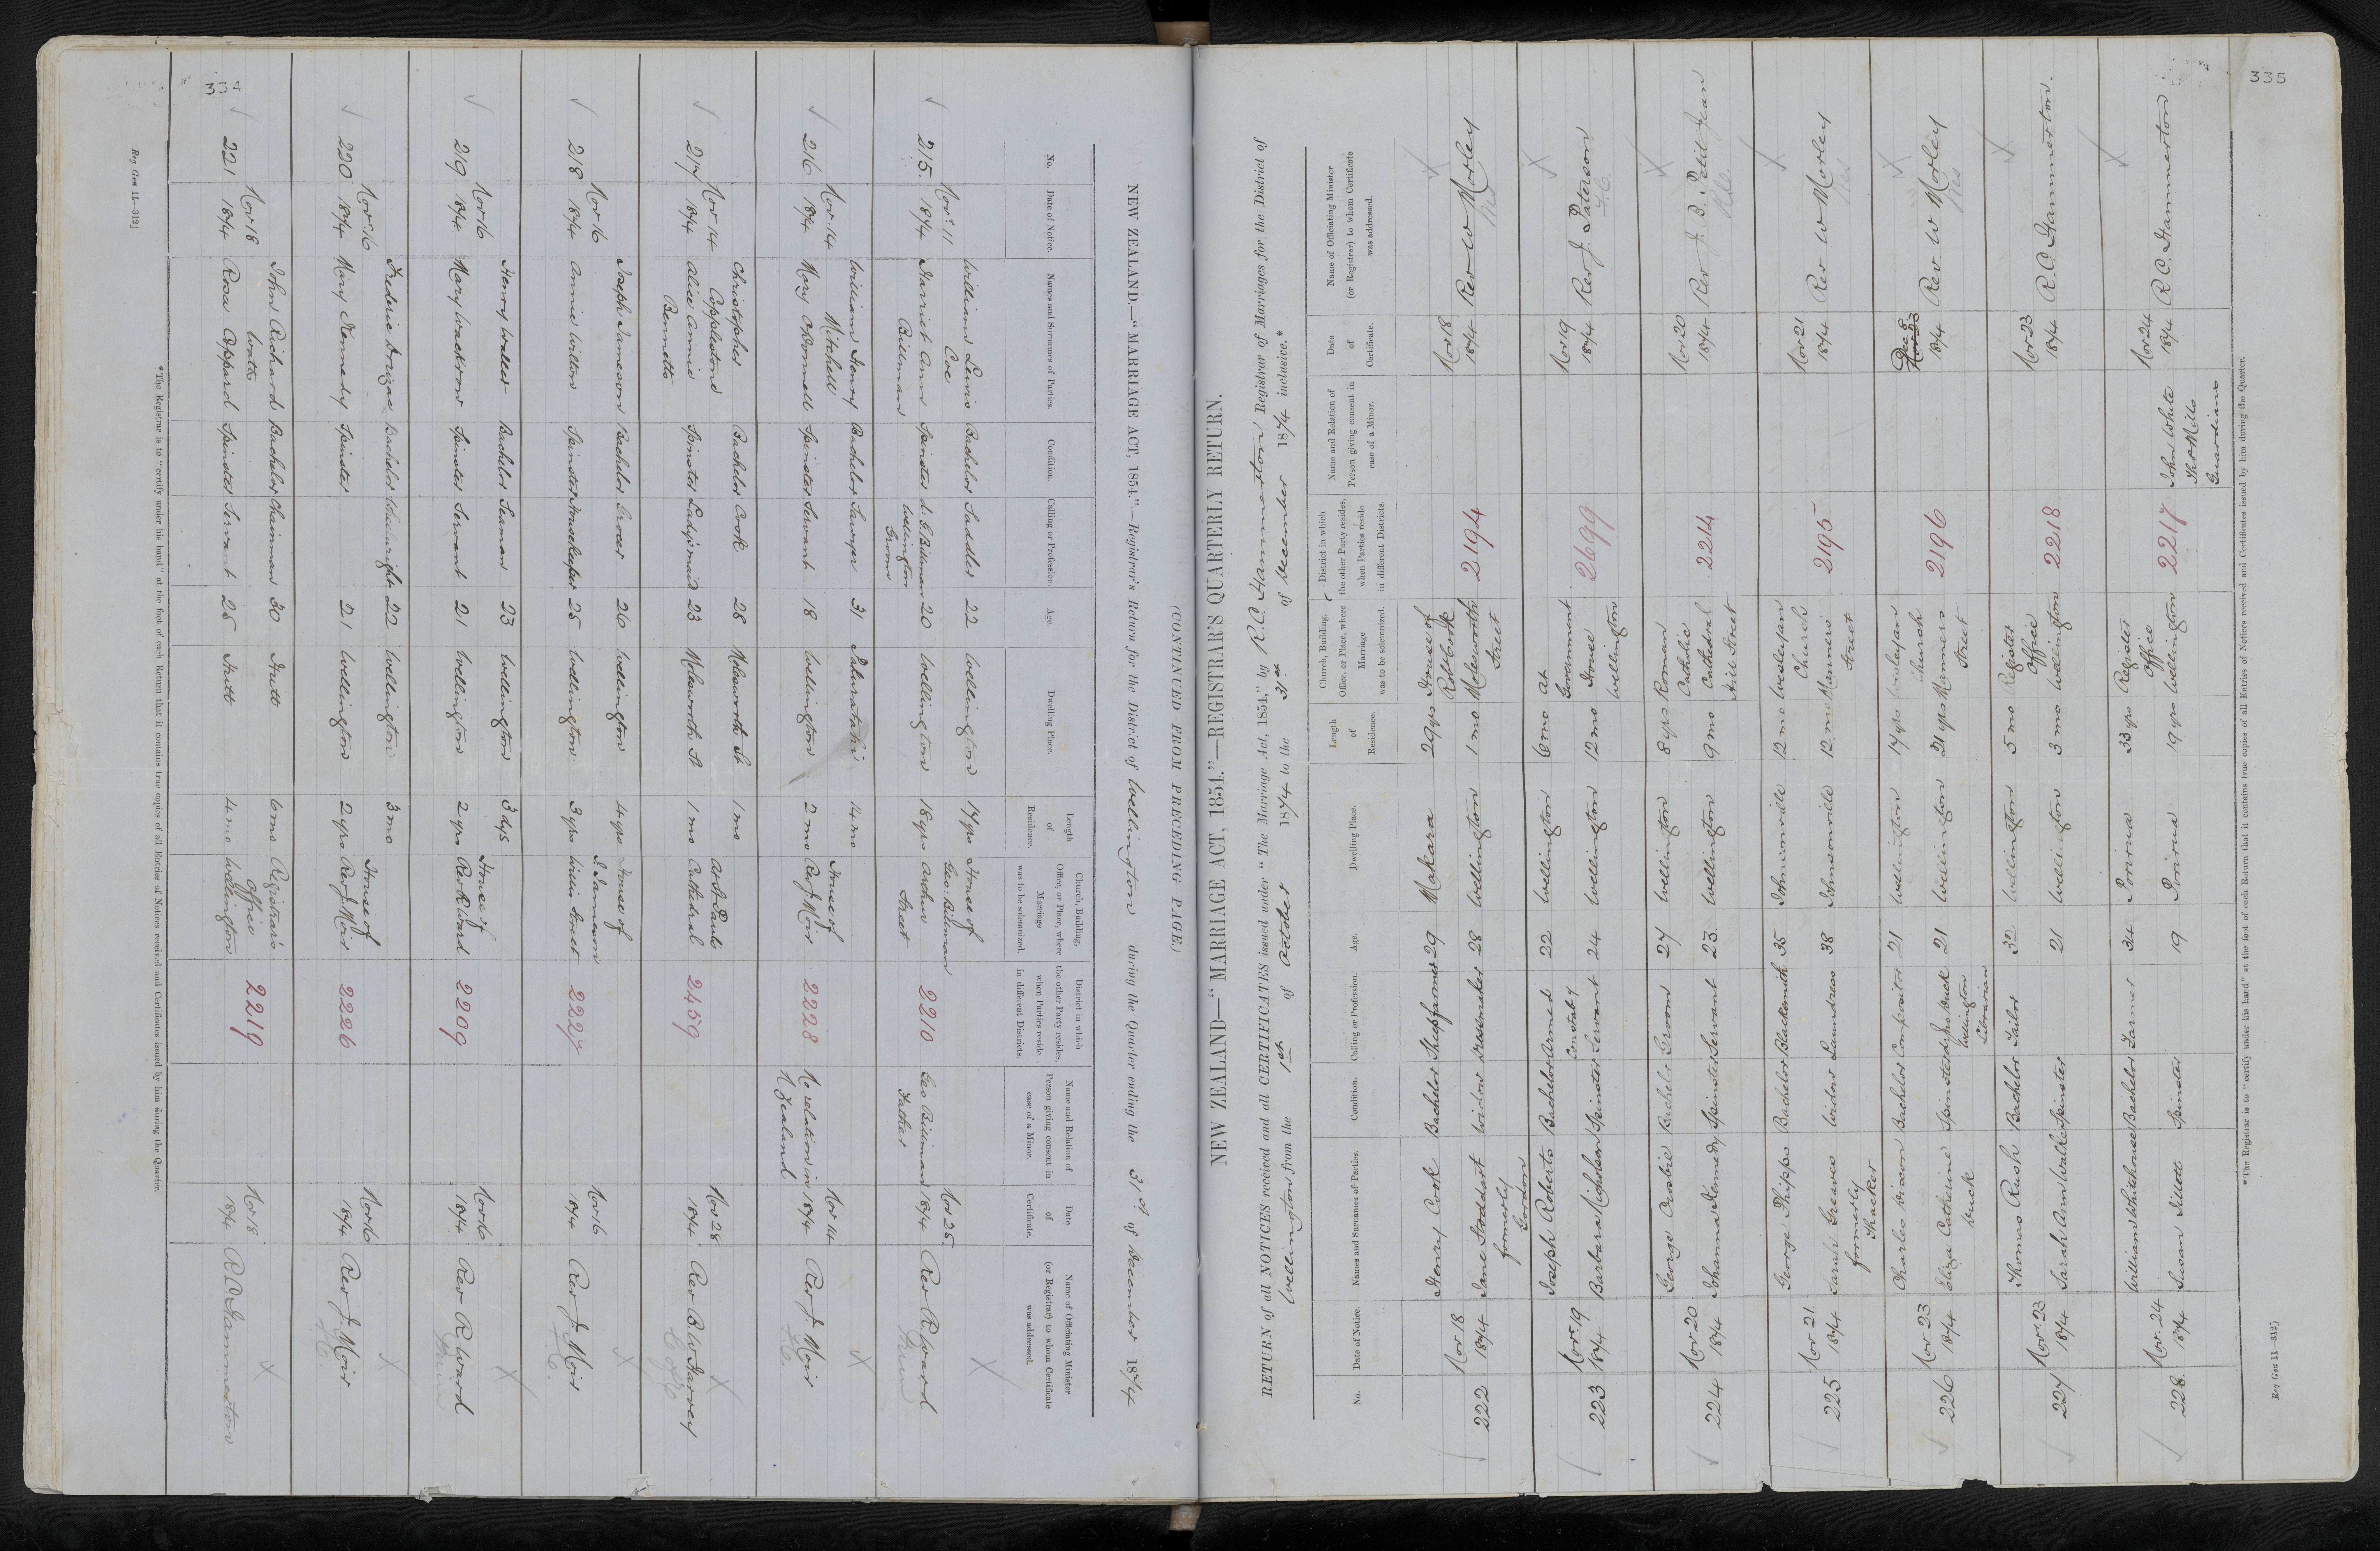 334
(CONTINUED FROM PRECEDING PAGE.)
NEW ZEALAND—"MARRIAGE ACT, 1854."—Registrar's Return for the District of Wellington during the Quarter ending the 31st of December 1874
No. Date of Notice. Names and Surnames of Parties. Condition. Calling or Profession. Age. Dwelling Place. Length of Residence. Church, Building, Office, or Place, where Marriage was to be solemnized. District in which the other Party resides, when Parties reside in different Districts. Name and Relation of Person giving consent in case of a Minor. Date of Certificate. Name of Officiating Minister (or Registrar) to whom Certificate was addressed.
William Lewis Bachelor Saddler 22 Wellington 17 yrs House of
Nov. 11 Coe Geo: Billman Nov 25
215 1874 Harriet Ann Spinster d. G Billman 20 Wellington 18 yrs Arthur 2210 Geo Billman 1874 Rev R Ward
Billman Wellington Street Father
Groom
William Henry Bachelor Sawyer 31 14 mo
Nov. 14 Mitchell House of Nov 14
216 1874 Mary O'Donnell Spinster Servant 18 Wellington 2 mo Rev J Moir 2228 No relation in 1874 Rev J. Moir
N Zealand
Christopher Bachelor Cook 28 Molesworth St 1 mo
Nov 14 Copplestone at St Pauls Nov 28
217 1874 Alice Annie Spinster Ladys maid 23 Molesworth St 1 mo Cathedral 2459 1874 Rev B W Harvey
Bennetts
Joseph Jameson Bachelor Grocer 26 Wellington 4 yrs House of
Nov 16 J Jameson Nov 16
218 1874 Annie Wilton Spinster Housekeeper 25 Wellington 3 yrs Willis Street 2227 1874 Rev J. Moir
Henry Waller Bachelor Seaman 23 Wellington 3 dys
Nov 16 House of Nov 16
219 1874 Mary Spinster Servant 21 Wellington 2 yrs Rev R Ward 2209 1874 Rev R Ward
Frederic Bachelor Wheelwright 22 Wellington 3 mo
Nov. 16 House of Nov 16
220 1874 Mary Kennedy Spinster 21 Wellington 2 yrs Rev J Moir 2226 1874 Rev J. Moir
John Richard Bachelor Chainman 30 Hutt 6 mo Registrar's
Nov 18 Watts Office Nov 18
221 1874 Rosa Coppard Spinster Servant 25 Hutt 4 mo Wellington 2219 1874 R C Hammerton
*The Registrar is to "certify under his hand" at the foot of each Return that it contains true copies of all Entries of Notices received and Certificates issued by him during the Quarter.
Reg Gen 11—312]
335
NEW ZEALAND—"MARRIAGE ACT, 1854."—REGISTRAR'S QUARTERLY RETURN.
RETURN of all NOTICES received and all CERTIFICATES issued under "The Marriage Act, 1854," by R.C. Hammerton Registrar of Marriages for the District of
Wellington from the 1st of October 1874 to the 31st of December 1874 inclusive.*
No. Date of Notice. Names and Surnames of Parties. Condition. Calling or Profession. Age. Dwelling Place. Length of Residence. Church, Building, Office, or Place, where Marriage was to be solemnized. District in which the other Party resides, when Parties reside in different Districts. Name and Relation of Person giving consent in case of a Minor. Date of Certificate. Name of Officiating Minister (or Registrar) to whom Certificate was addressed.
Henry Cook Bachelor Sheepfarmer 29 Makara 29 yrs House of
Nov 18 Nov 18
222 1874 Jane Stoddart Widow Dressmaker 28 Wellington 1 mo Molesworth 2194 1874 Rev W Morley
formerly Street
Gordon
Joseph Roberts Bachelor Armed 22 Wellington 6 mo at
Nov. 19 Constaby Government Nov 19
223 1874 Barbara Spinster Servant 24 Wellington 12 mo House 2699 1874 Rev J. Paterson
Wellington
George Crosbie Bachelor Groom 27 Wellington 8 yrs Roman
Nov 20 Catholic Nov 20
224 1874 Johanna Kennedy Spinster Servant 23 Wellington 9 mo Cathedral 2214 1874 Rev J. B. Petit Jean
Hill Street
George Phipps Bachelor Blacksmith 35 Johnsonville 12 mo Wesleyan
Nov 21 Church Nov 21
225 1874 Sarah Greaves Widow Laundress 38 Johnsonville 12 mo Manners 2195 1874 Rev W Morley
formerly Street
Thacker
Charles Bachelor Compositor 21 Wellington 17 yrs Wesleyan
Nov 23 Church Dec 8
226 1874 Eliza Catherine Spinster 21 Wellington 21 yrs Manners 2196 1874 Rev W Morley
Wellington Street
Librarian
Thomas Rush Bachelor Tailor 32 Wellington 5 mo Register
Nov. 23 Office Nov 23
227 1874 Sarah Ann Walker Spinster 21 Wellington 3 mo Wellington 2218 1874 R.C. Hammerton.
William Whitehouse Bachelor Farmer 34 Porirua 33 yrs Register John White
Nov. 24 Office Thos Mills Nov 24
228 1874 Susan Spinster 19 Porirua 19 yrs Wellington 2217 Guardians 1874 R.C. Hammerton
*The Registrar is to "certify under his hand" at the foot of each Return that it contains true copies of all Entries of Notices received and Certificates issued by him during the Quarter.
Reg Gen 11—312]